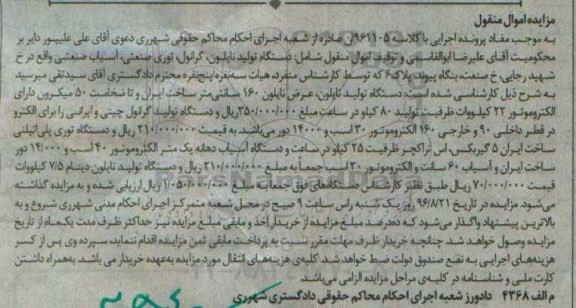 مزایده اموال منقول
به موجب مفاد پرونده اجرایی با کلاسه ۹۶۱۱۰۵ن صادره از شعبه اجرای احکام محاکم حقوقی شهرری دعوی آقای علی علیپور دایر بر
محکومیت آقای علیرضا ابوالقاسمی و تولید اموال منقول شامل: دستگاه تولید نایلون، گرانول، توری صنعتی، آسیاب صنعتی واقع در خ
شهید رجایی، خ صنعت، پنگاه پیوند، پلاک ۶ که توسط کارشناس منفرد، هیات سه‌نفره پنج‌نفره محترم دادگستری آقای سیدتقی میرسید
به شرح ذیل کارشناسی شده است: دستگاه تولید نایلون، عرض نایلون ۱۶۰ سانتی‌متر ساخت ایران و تا ضخامت ۵۰ میکرون دارای
الکتروموتور ۲۲ کیلووات ظرفیت تولید ۸۰ کیلو در ساعت مبلغ ۳۵۰/۰۰۰/۰۰۰ریال و دستگاه تولید گرانول چینی و ایرانی را برای الکترو
در قطر داخلی ۹۰ و خارجی ۱۶۰ الکتروموتور ۳۰ اسب و ۱۴۰۰۰ دور می‌باشد. به قیمت ۲۱۰/۰۰۰/۰۰۰ ریال و دستگاه توری پلی‌اتیلنی
ساخت ایران ۵ گیربکس، اس تراکچر ظرفیت ۲۵ کیلو در ساعت و دستگاه آسیاب دهانه یک متر الکتروموتور ۴۰ اسب و ۱۴/۰۰۰ دور
ساخت ایران و آسیاب ۶۰ سانت و الکتروموتور ۳۰ اسب جمعاً به مبلغ ۲۱۰/۰۰۰/۰۰۰ ریال و دستگاه تولید نایلون دینام ۷/۵ کیلووات
قیمت ۷۰/۰۰۰/۰۰۰ ریال طبق نظر کارشناس دستگاه‌های فوق جمعاً به مبلغ ۱/۰۵۰/۰۰۰/۰۰۰ ریال ارزیابی شده و به مزایده گذاشته
می‌شود. مزایده در تاریخ ۹۶/۸/۲۱ روز یک شنبه راس ساعت ۹ صبح در محل شعبه متمرکز اجرای احکام مدنی شهرری شروع و به
بالاترین پیشنهاد واگذار می‌شود که ده‌درصد مبلغ مزایده از خریدار اخذ و مابقی مبلغ مزایده نیز حداکثر ظرف مدت یک‌ماه از تاریخ
مزایده وصول خواهد شد. چنانچه خریدار ظرف مهلت مقرر نسبت به پرداخت مابقی ثمن مزایده اقدام ننماید، سپرده وی پس از کسر
هزینه‌های اجرایی به نفع صندوق دولت ضبط خواهد شد. کلیه‌ی هزینه‌های انتقال مورد مزایده به‌عهده خریدار می باشد. به‌همراه داشتن
کارت ملی و شناسنامه در کلیه‌ی مراحل مزایده الزامی می‌باشد.
م الف ۴۳۶۸ دادورز شعبه اجرای احکام محاکم حقوقی دادگستری شهرری